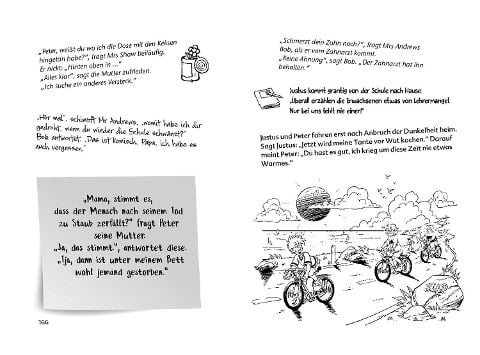 „Peter, weißt du wo ich die Dose mit den Keksen
hingetan habe?“, fragt Mrs Shaw beiläufig.
Er nickt: „Hinten oben in ...“
„Alles klar“, sagt die Mutter zufrieden.
„Ich suche ein anderes Versteck.“
„Hör mal“, schimpft Mr Andrews, „womit habe ich dir
gedroht, wenn du wieder die Schule schwänzt?“
Bob antwortet: „Das ist komisch, Papa, ich habe es
auch vergessen.“
„Mama, stimmt es,
dass der Mensch nach seinem Tod
zu Staub zerfällt?“ fragt Peter
seine Mutter.
„Ja, das stimmt“, antwortet diese.
„Tja, dann ist unter meinem Bett
wohl jemand gestorben.“
166
„Schmerzt dein Zahn noch?“, fragt Mrs Andrews
Bob, als er vom Zahnarzt kommt.
„Keine Ahnung“, sagt Bob. „Der Zahnarzt hat ihn
behalten.“
Justus kommt grantig von der Schule nach Hause:
„Überall erzählen die Erwachsenen etwas von Lehrermangel.
Nur bei uns fehlt nie einer!“
Justus und Peter fahren erst nach Anbruch der Dunkelheit heim.
Sagt Justus: „Jetzt wird meine Tante vor Wut kochen.“ Darauf
meint Peter: „Du hast es gut, ich krieg um diese Zeit nie etwas
Warmes.“